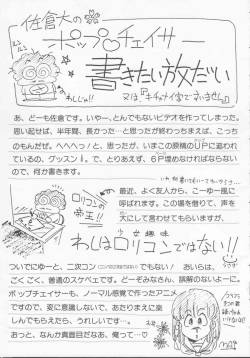 佐倉大の
ポップ♡チェイサー
書きたい放だい
又は「キチャナイ字ですいません」
わしじゃ!!
あ、どーも佐倉です。いやー、とんでもないビデオを作ってしまった。
思い起せば、半年間、長かった…と思ったが終わっちまえば、こっち
のもんだぜ。へへへっ!と、思ったが、いまこの原稿のUPに追われ
ているの、グッスン。で、とりあえず、6P埋めなければならない
ので、何か書きます。
最近、よく友人から、こーゆー風に
呼ばれます。この場を借りて、声を
大にして言わせてもらいますが、
ロリコンの
帝王!!
わしはロリコンではない!!
少女趣味
ついでにゆーと、二次コン
でもない!あいらは、
ごくごく、普通のスケベです。どーぞみなさん、誤解のないよーに。
ポップチェイサーも、ノーマル感覚で作ったアニメ
ですので、変に意識しないで、あたりまえに楽
しんでもらえたら、うれしいです…。
おっと、なんか真面目だなあ、今回は…。